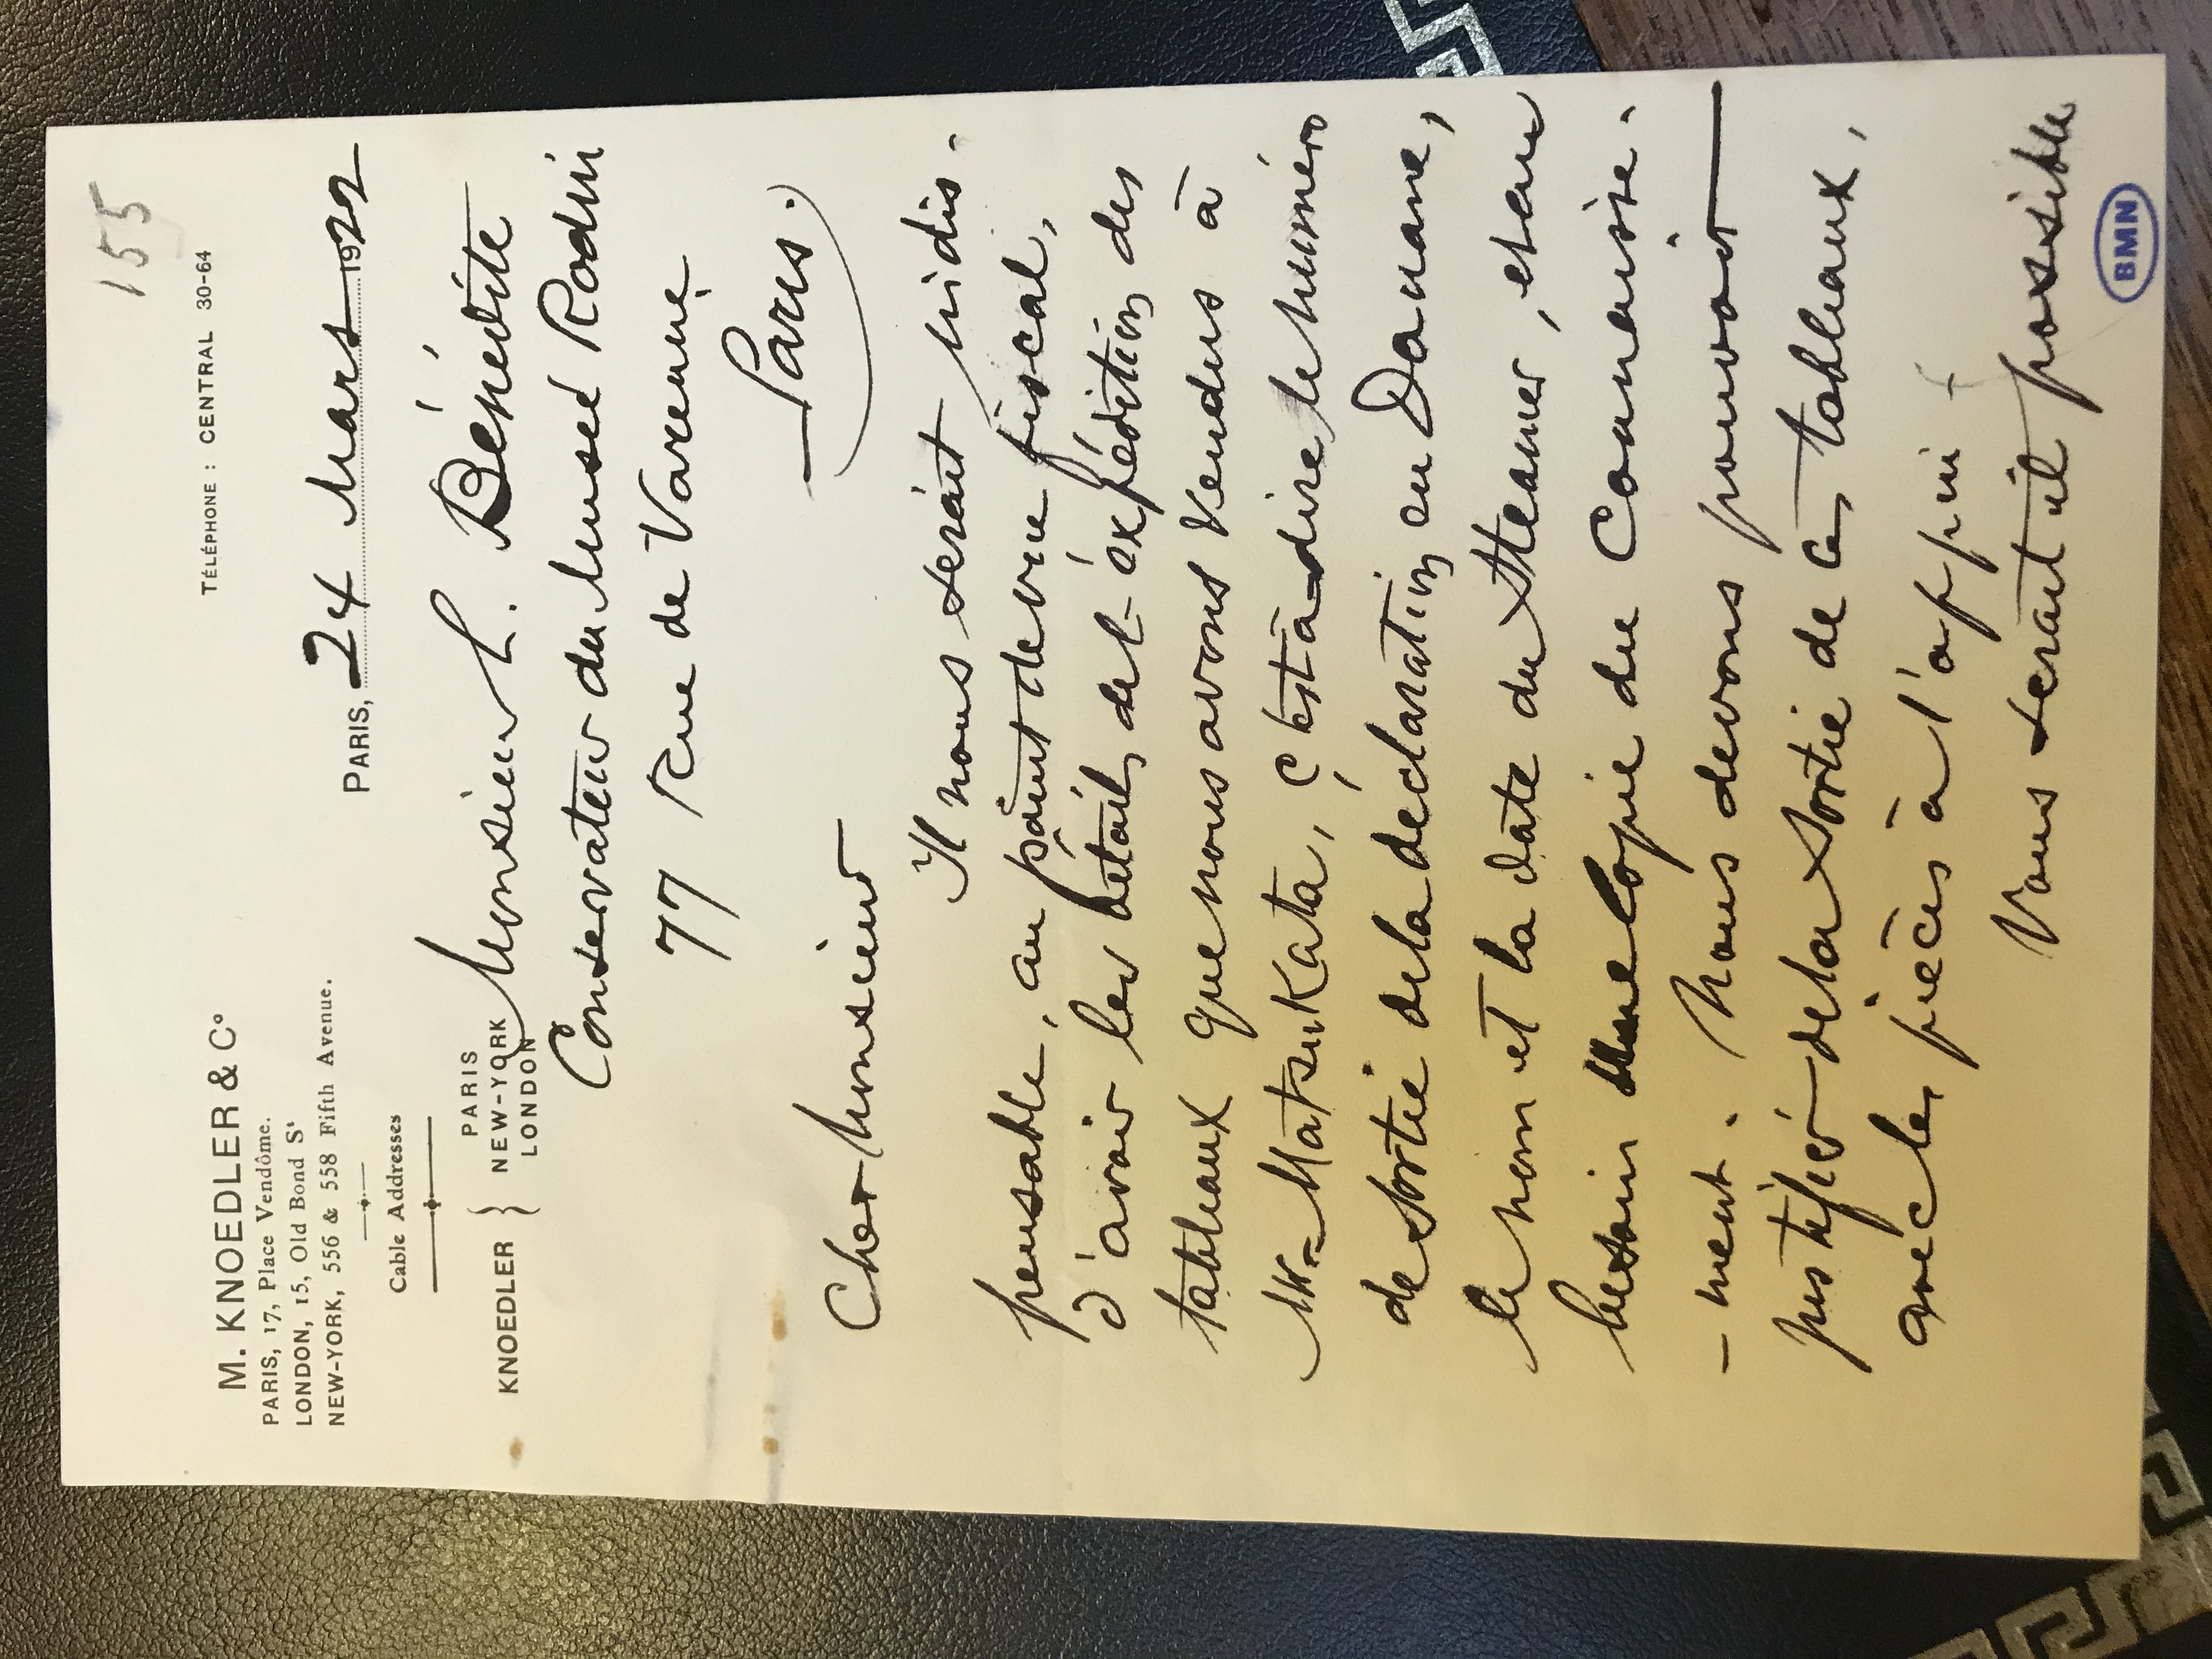 155
M. KNOEDLER & Cº
PARIS, 17, Place Vendôme.
LONDON, 15, Old Bond Sᵗ
NEW-YORK, 556 & 558 Fifth Avenue.
Cable Addresses
KNOEDLER { PARIS
NEW-YORK
LONDON
TÉLÉPHONE : CENTRAL 30-64
PARIS, 24 Mars 1922
Monsieur L. Bénédite
Conservateur du Musée Rodin
77 Rue de Varenne
Paris.
Cher Monsieur
Il nous serait indis-
pensable, au point de vue fiscal,
d'avoir les détails de l'expédition des
tableaux que nous avons vendus à
Mr. Matsukata, c'est à dire le numéro
de sortie de la déclaration en Douane,
le nom et la date du Steamer, et au
besoin une copie du Connaisse-
-ment. Nous devons pouvoir
justifier de la sortie de ces tableaux,
avec les pièces à l'appui -
Vous serait il possible
BMN